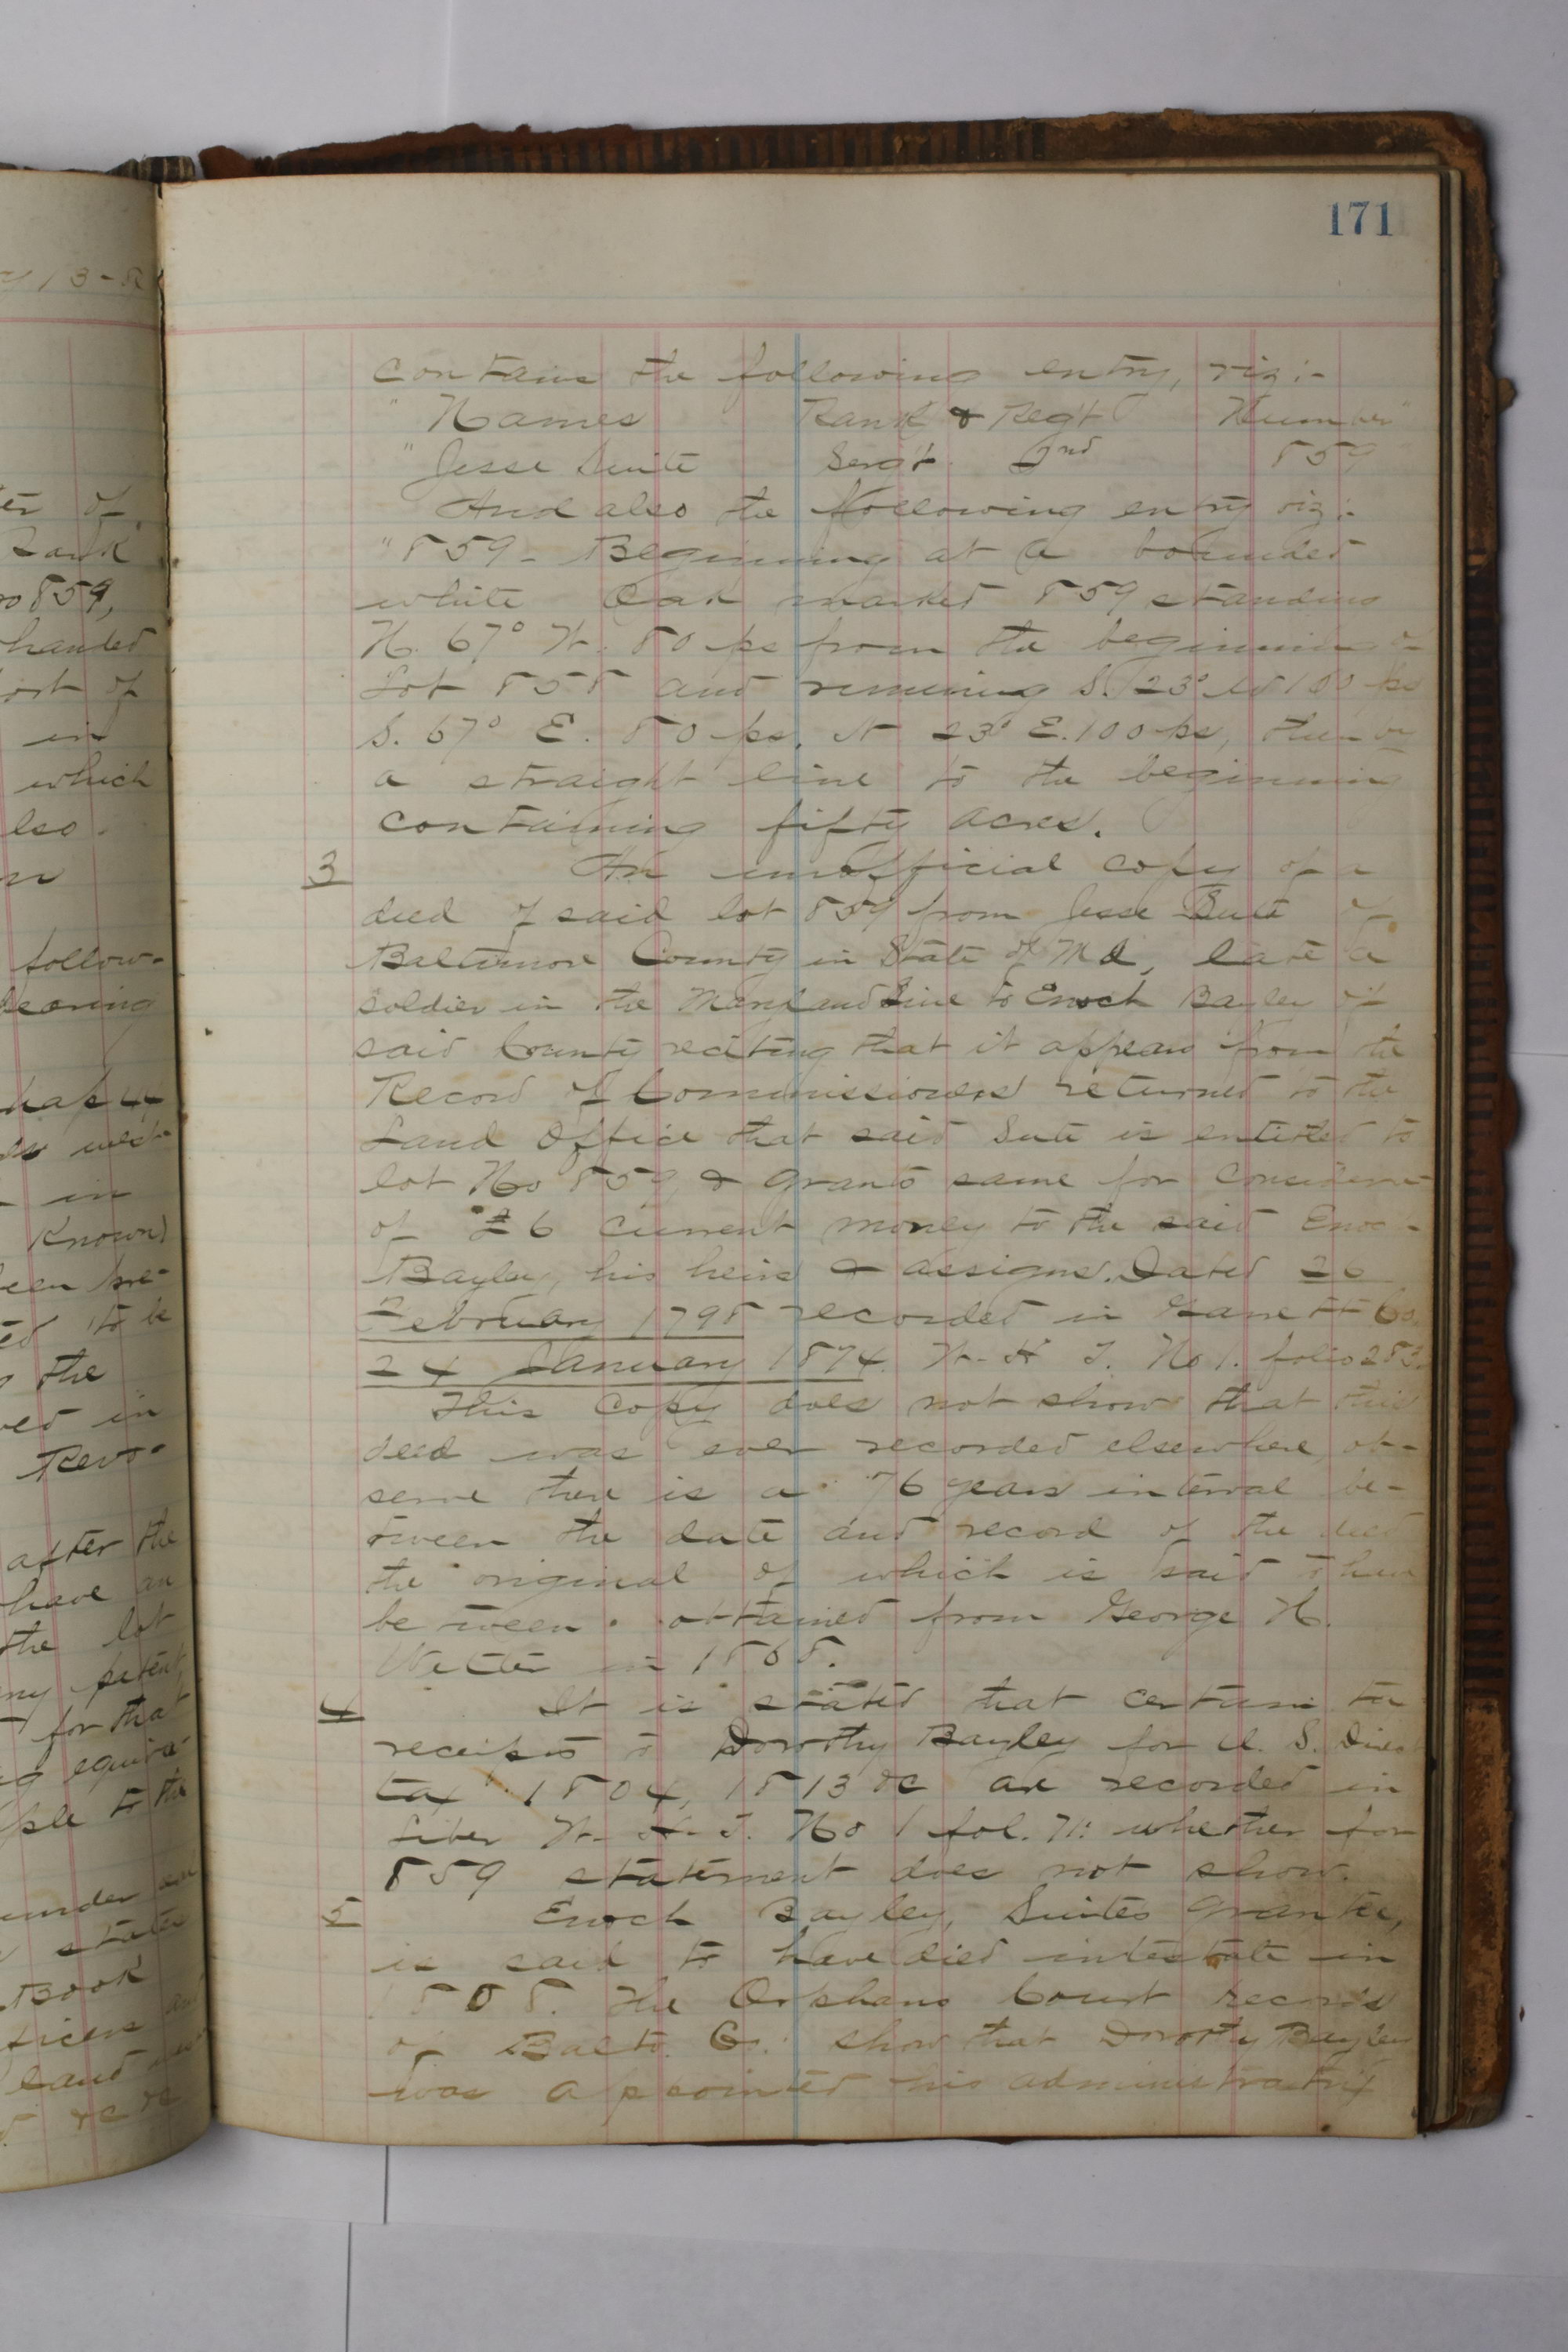 171
contains the following entry, viz:-
" Names Rank & Reg't Number"
" Jesse Suite Serg't 2nd 859
And also the following entry viz:-
"859 - Beginning at a bounded
white Oak marked 859 standing
N. 67° W. 80 ps from the beginning of
Lot 858 and running S. 23° W 100 ps
S. 67° E. 80 ps. N 23° E. 100 ps, then by
a straight line to the beginning
containing fifty acres.
3 An unofficial copy of a
deed of said lot 859 from Jesse Suite of
Baltimore County in State of Md, late a
soldier in the Maryland Line to Enoch Bayley of
said County reciting that it appears from the
Record of Commissioners returned to the
Land Office that said Suite is entitled to
lot No 859, & grants same for
of £6 current money to the said Enoch
Bayley, his heirs & assigns. Dated 26
February 1798 recorded in Garrett Co.
24 January 1874 W. H. T. No 1. folio 283.
This Copy does not show that this
deed was ever recorded elsewhere, ob-
serve there is a 76 years interval be-
tween the date and record of the deed
the original of which is said to have
be tween obtained from George H.
in 1868.
4 It is stated that certain tax
receipts to Dorothy Bayley for U. S. Direct
tax 1804, 1813 &c are recorded in
Liber W. H. T. No 1 fol. 71: whether for
859 statement does not show.
5 Enoch Bayley, Suites Grantee,
is said to have died intestate in
1808. The Orphans Court records
of Balto. Co. show that Dorothy Bayley
was appointed his administratrix